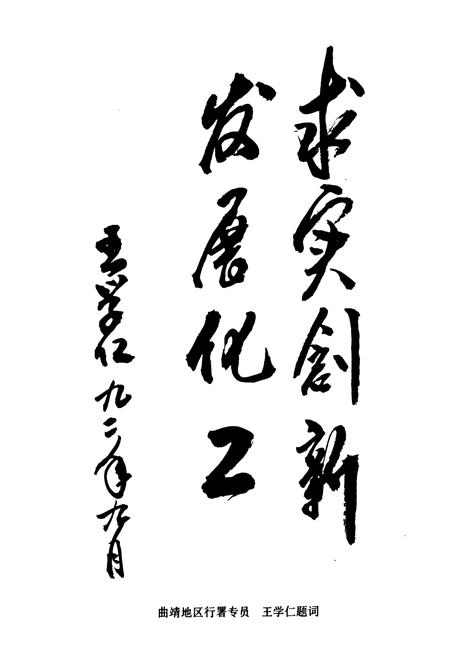 求实创新
发展化工
王学仁九二年九月
曲靖地区行署专员 王学仁题词